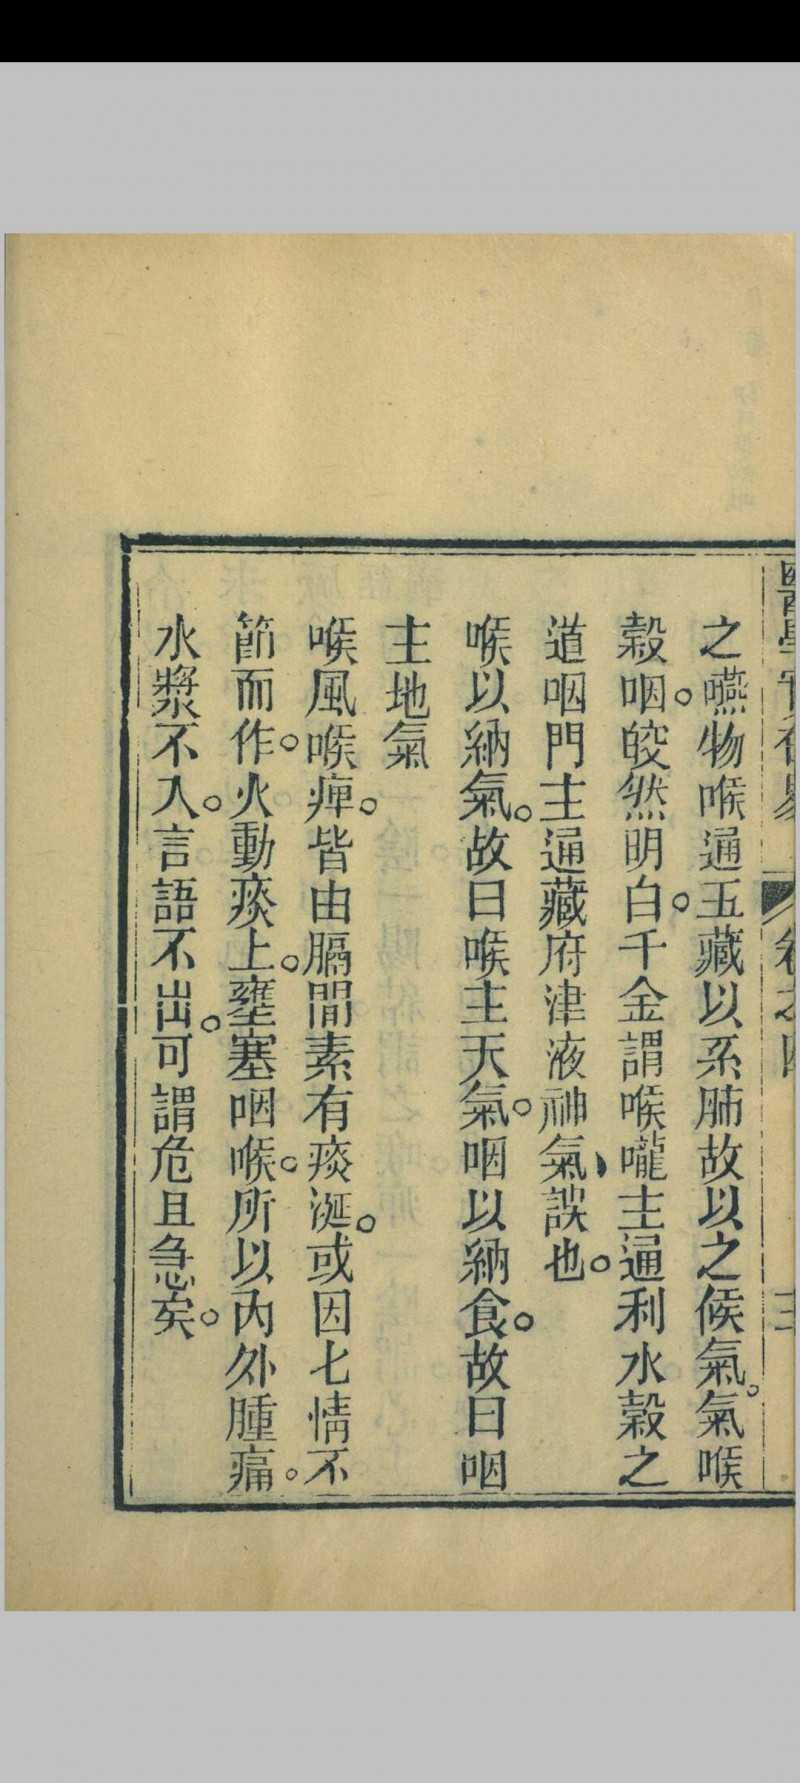 之嚥物喉通五藏以系肺故以之候氣。氣喉
穀咽。皎然明白。千金謂喉嚨主通利水穀之
道咽門主通藏府津液神氣、誤也。
喉以納氣。故曰喉主天氣。咽以納食。故曰咽
主地氣
喉風喉痺。皆由膈間素有痰涎。或因七情不
節而作。火動痰上。壅塞咽喉。所以內外腫痛。
水漿不入。言語不出。可謂危且急矣。